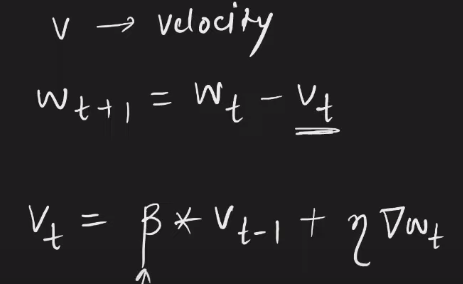 v → velocity
w_{t+1} = w_t - v_t
v_t = β * v_{t-1} + η ∇w_t